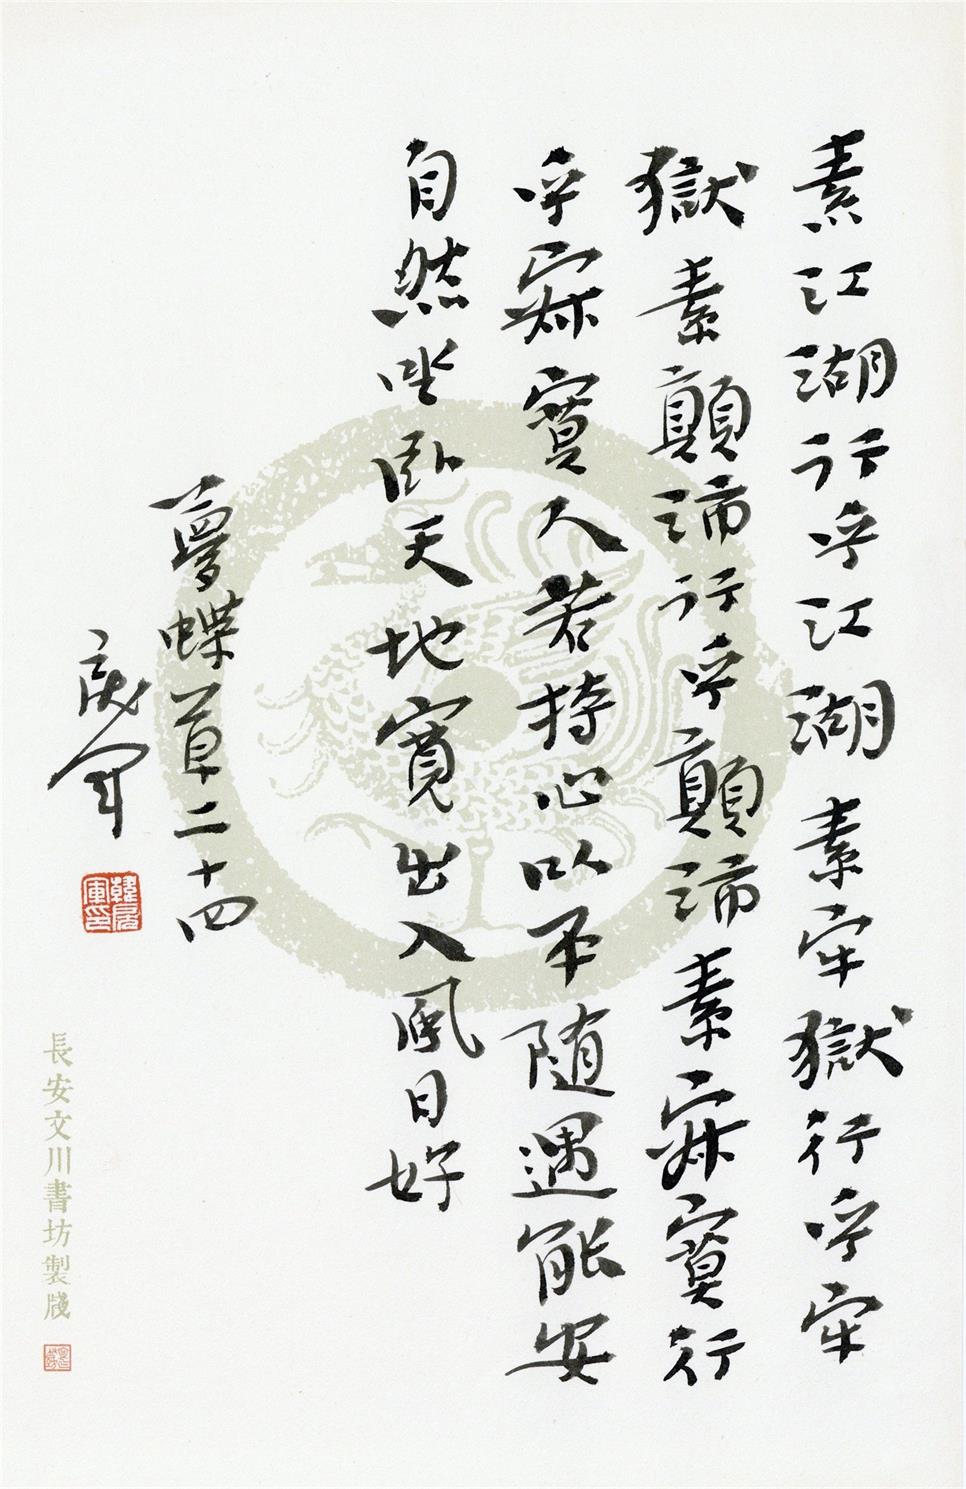 素江湖行乎江湖素牢獄行乎牢
獄素顛沛行乎顛沛素寂寞行
乎寂寞人若持心以平随遇能安
自然坐卧天地寬出入風日好
夢蝶草二十四
長安文川書坊製牋